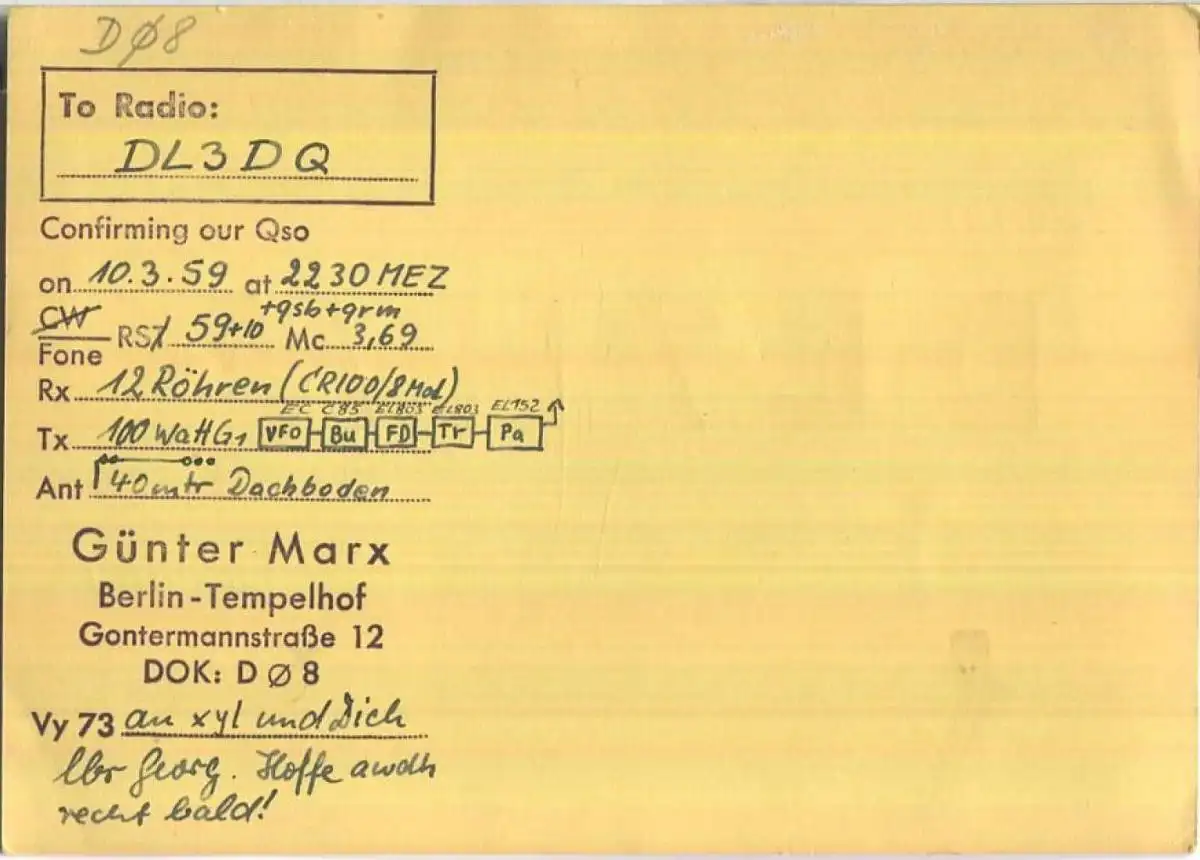 DØ8
To Radio:
DL3DQ
Confirming our Qso
on 10.3.59 at 2230 MEZ
+qsb+qrm
CW
Fone RST 59+10 Mc 3,69
Rx 12 Röhren (CR100/8 Mod)
EC C85 EL803 EL803 EL152
Tx 100 Watt G1 VFO Bu FD Tr Pa
Ant 40 mtr Dachboden
Günter Marx
Berlin-Tempelhof
Gontermannstraße 12
DOK: DØ8
Vy 73 an xyl und Dich
lbr Georg. Hoffe awdh
recht bald!